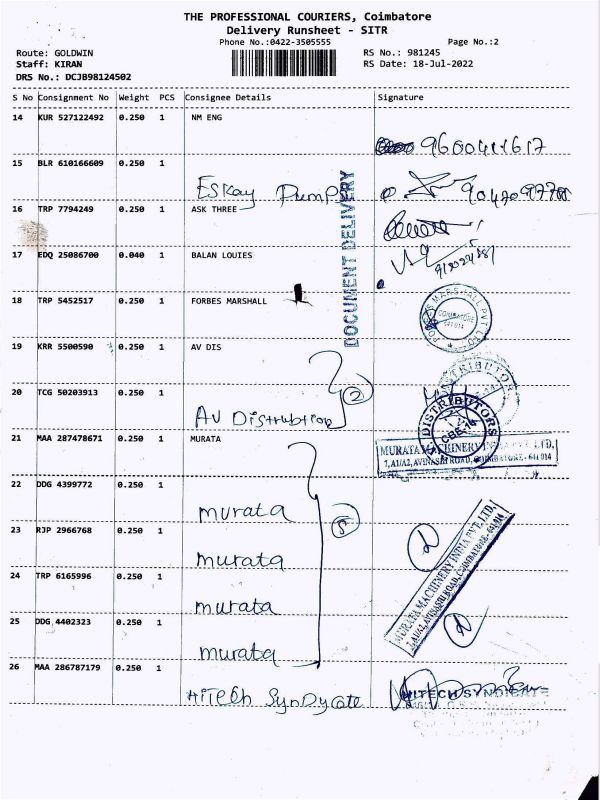 THE PROFESSIONAL COURIERS, Coimbatore
Delivery Runsheet - SITR
Phone No.:0422-3505555
Page No.:2
Route: GOLDWIN
Staff: KIRAN
DRS No.: DCJB98124502
RS No.: 981245
RS Date: 18-Jul-2022
S No Consignment No Weight PCS Consignee Details Signature
14 KUR 527122492 0.250 1 NM ENG
9600411617
15 BLR 610166609 0.250 1
ESkay Pumps
16 TRP 7794249 0.250 1 ASK THREE
17 EDQ 25086700 0.040 1 BALAN LOUIES
DOCUMENT DELIVERY
18 TRP 5452517 0.250 1 FORBES MARSHALL
COIMBATORE
641 014
19 KRR 5500590 0.250 1 AV DIS
2
20 TCG 50203913 0.250 1
AV Distrubtion
DISTRIBUTORS
CBE-14
21 MAA 287478671 0.250 1 MURATA
MURATA MACHINERY INDIA PVT. LTD,
7,A1/A2, AVINASHI ROAD, COIMBATORE - 641 014
22 DDG 4399772 0.250 1
murata
5
23 RJP 2966768 0.250 1
murata
24 TRP 6165996 0.250 1
murata
MURATA MACHINERY INDIA PVT. LTD,
7,A1/A2, AVINASHI ROAD, COIMBATORE - 641 014
25 DDG 4402323 0.250 1
murata
26 MAA 286787179 0.250 1
HiTECh SynDycate
HITECH SYNDICATE